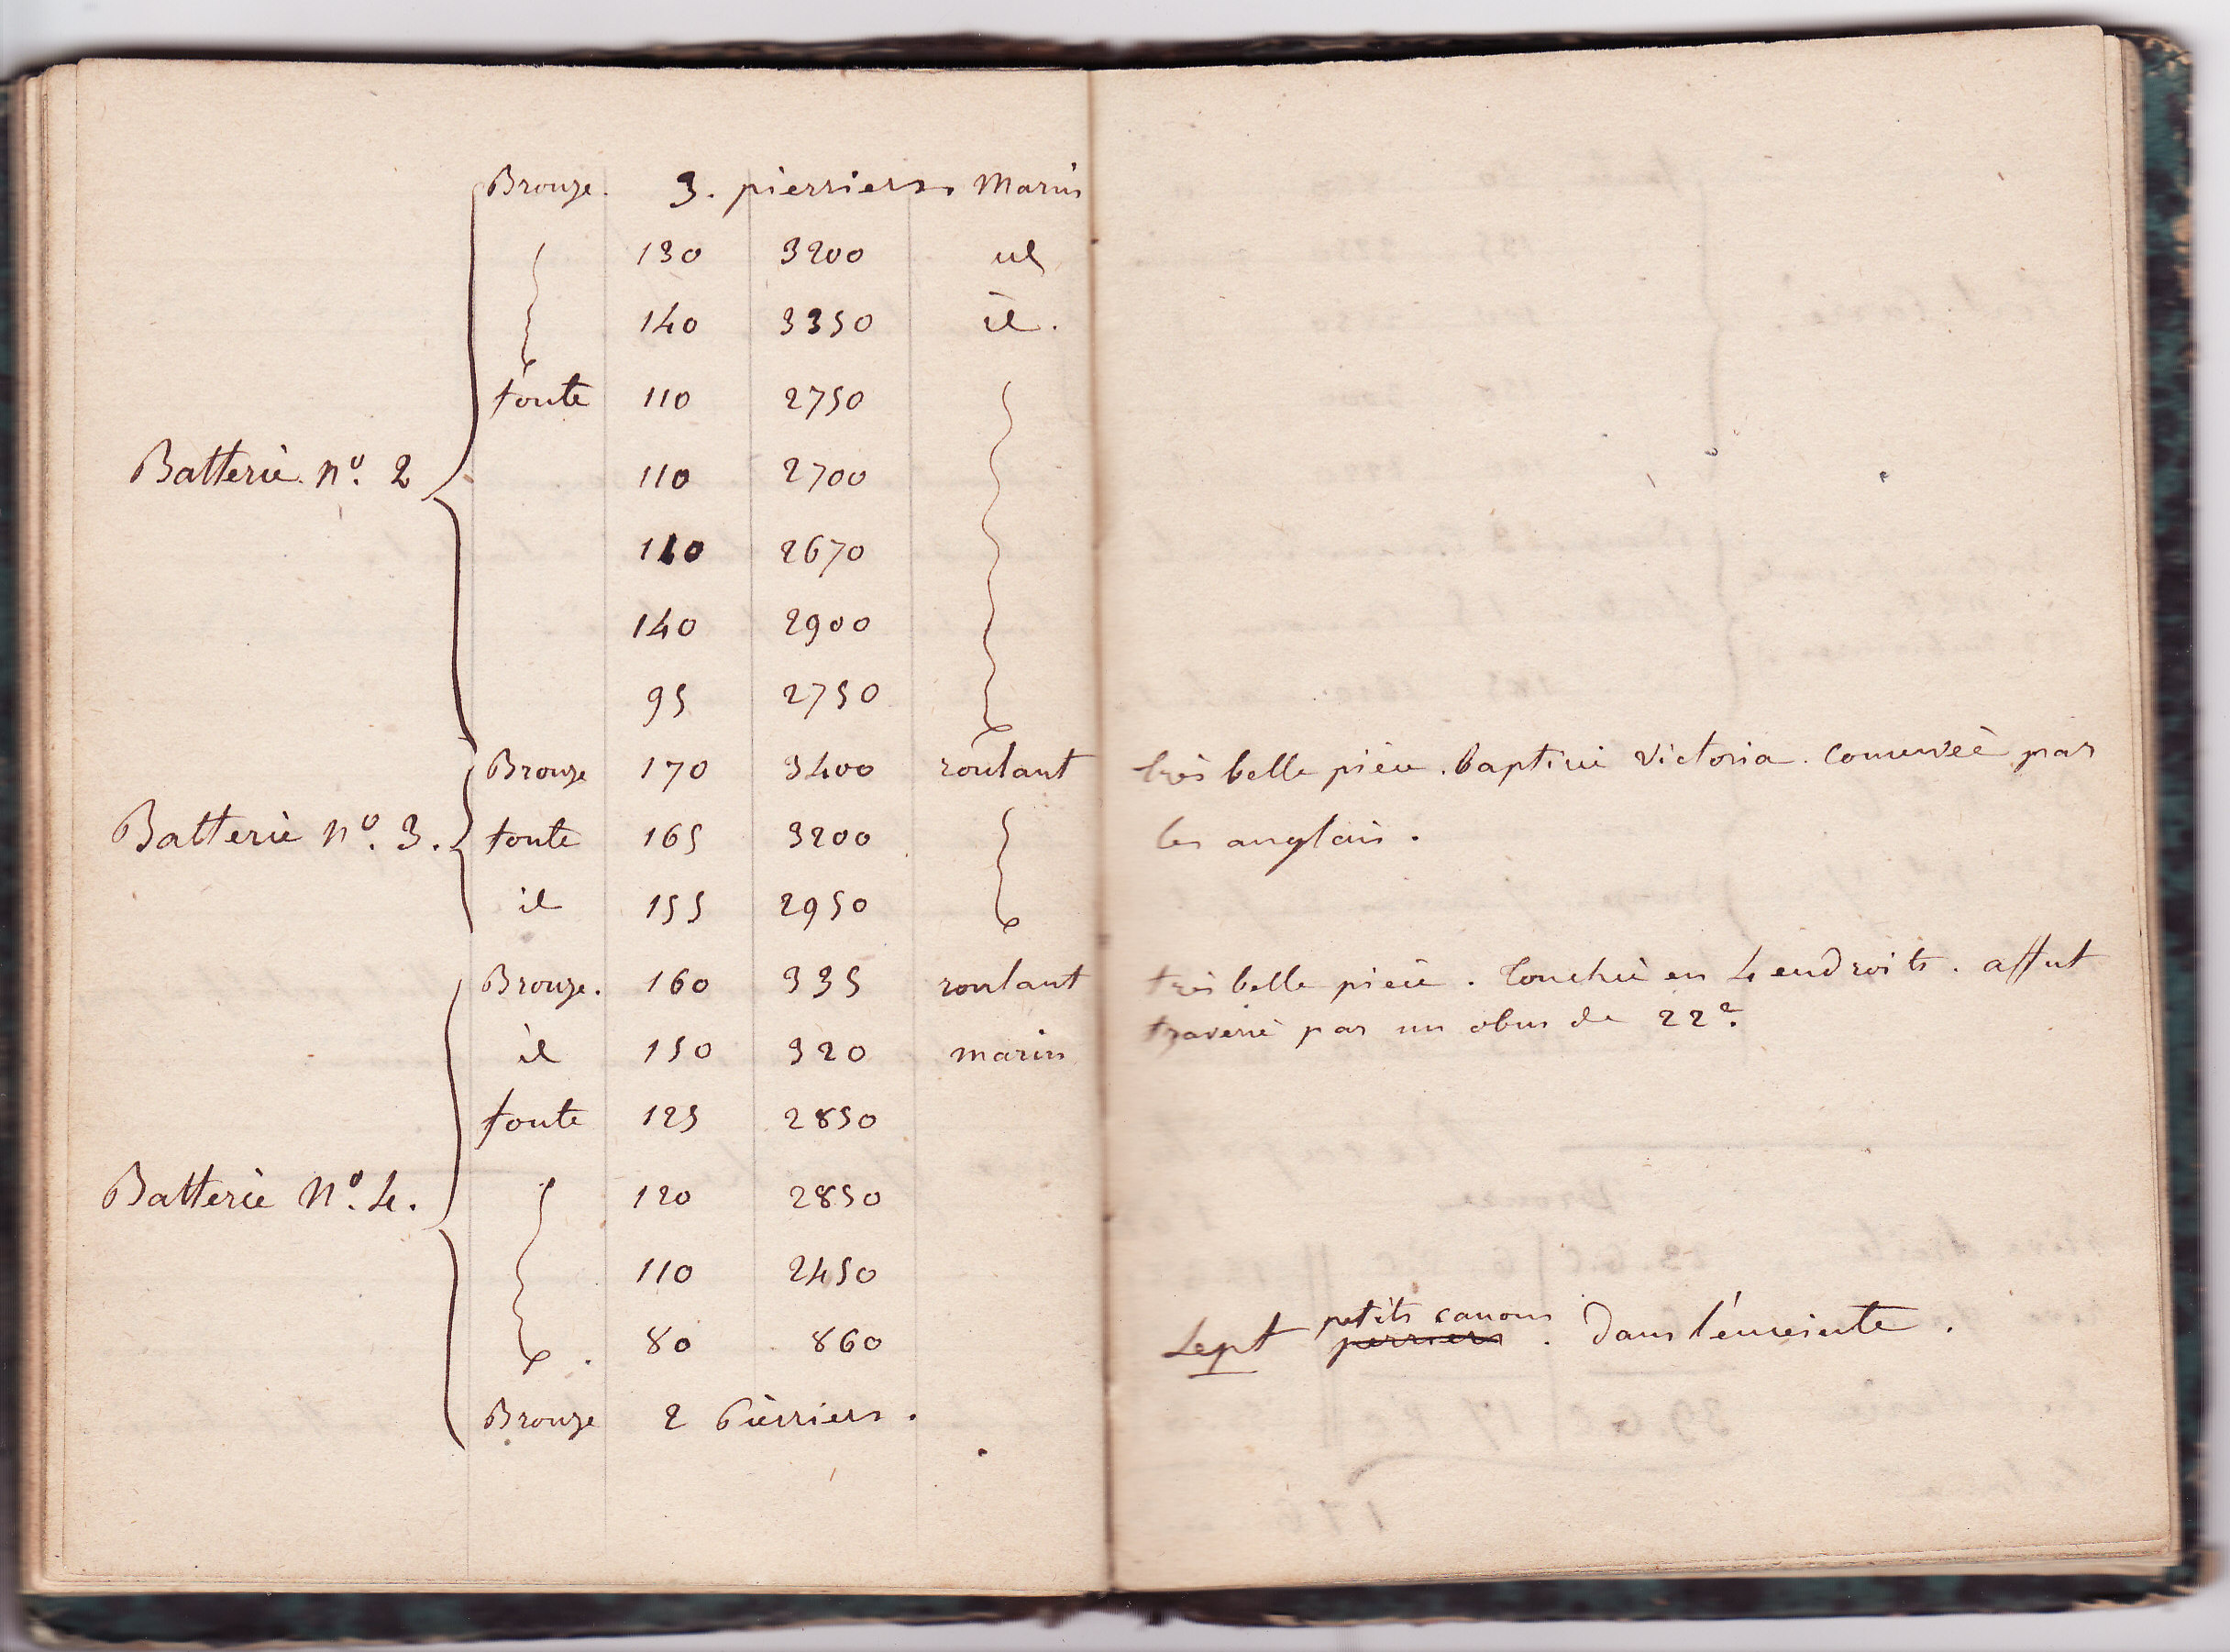 Bronze. 3. pierriers. Marin
130 3200 id
140 3350 id.
fonte 110 2750
Batterie n°. 2 110 2700
110 2670
140 2900
95 2750
Bronze 170 3400 roulant très belle pièce. baptisée Victoria. conservée par
Batterie n°. 3. fonte 165 3200 les anglais.
id 155 2950
Bronze. 160 335 roulant très belle pièce. Touchée en 4 endroits. affut
traversé par un obus de 22c.
id 150 320 marin
fonte 125 2850
Batterie N°. 4. 120 2850
110 2450
petits canons
80 860 Sept perriers. dans l'enceinte.
Bronze 2 Pierriers.